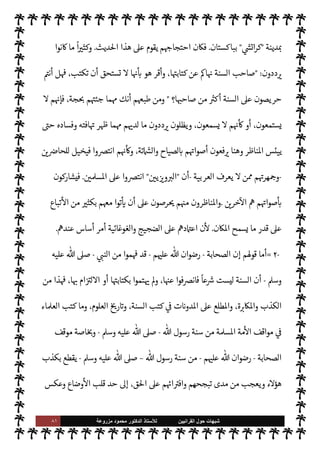 بمدينة "كراتشي" بباكستان. فكان احتجاجهم يقوم على هذا الحديث. وكثيراً ما كانوا
يرددون: "صاحب السنة نهاكم عن كتابتها، وأقر هو بأنها لا تستحق أن تكتب، فهل أنتم
حريصون على السنة أكثر من صاحبها؟ " ومن طبعهم أنك مهما جئتهم بحجة، فإنهم لا
يستمعون، أو كأنهم لا يسمعون، ويظلون يرددون ما لديهم مهما ظهر تهافته وفساده حتى
ييئس المناظر وهنا يرفعون أصواتهم بالصياح والشماتة، وكأنهم انتصروا فيخيل للحاضرين
-وجمهرتهم ممن لا يعرف العربية- أن "البرويزيين" انتصروا على المسلمين. فيشاركون
بأصواتهم هم الآخرين. والمناظرون منهم يحرصون على أن يأتوا معهم بكثير من الأتباع
على قدر ما يسمح المكان. لأن اعتمادهم على الضجيج والغوغائية أمر أساس عندهم.
٢٠ =أما قولهم إن الصحابة - رضوان الله عليهم - قد فهموا من النبي - صلى الله عليه
وسلم - أن السنة ليست شرعاً فانصرفوا عنها، ولم يهتموا بكتابتها أو الالتزام بها، فهذا من
الكذب والمكابرة، والمطلع على المدونات في كتب السنة، وتاريخ العلوم، وما كتب العلماء
في مواقف الأمة المسلمة من سنة رسول الله - صلى الله عليه وسلم - وبخاصة موقف
الصحابة - رضوان الله عليهم - من سنة رسول الله - صلى الله عليه وسلم - يقطع بكذب
هؤلاء ويعجب من مدى تبجحهم وافترائهم على الحق، إلى حد قلب الأوضاع وعكس
شبهات حول القرانيين للأستاذ الدكتور محمود مزروعة ٨٢